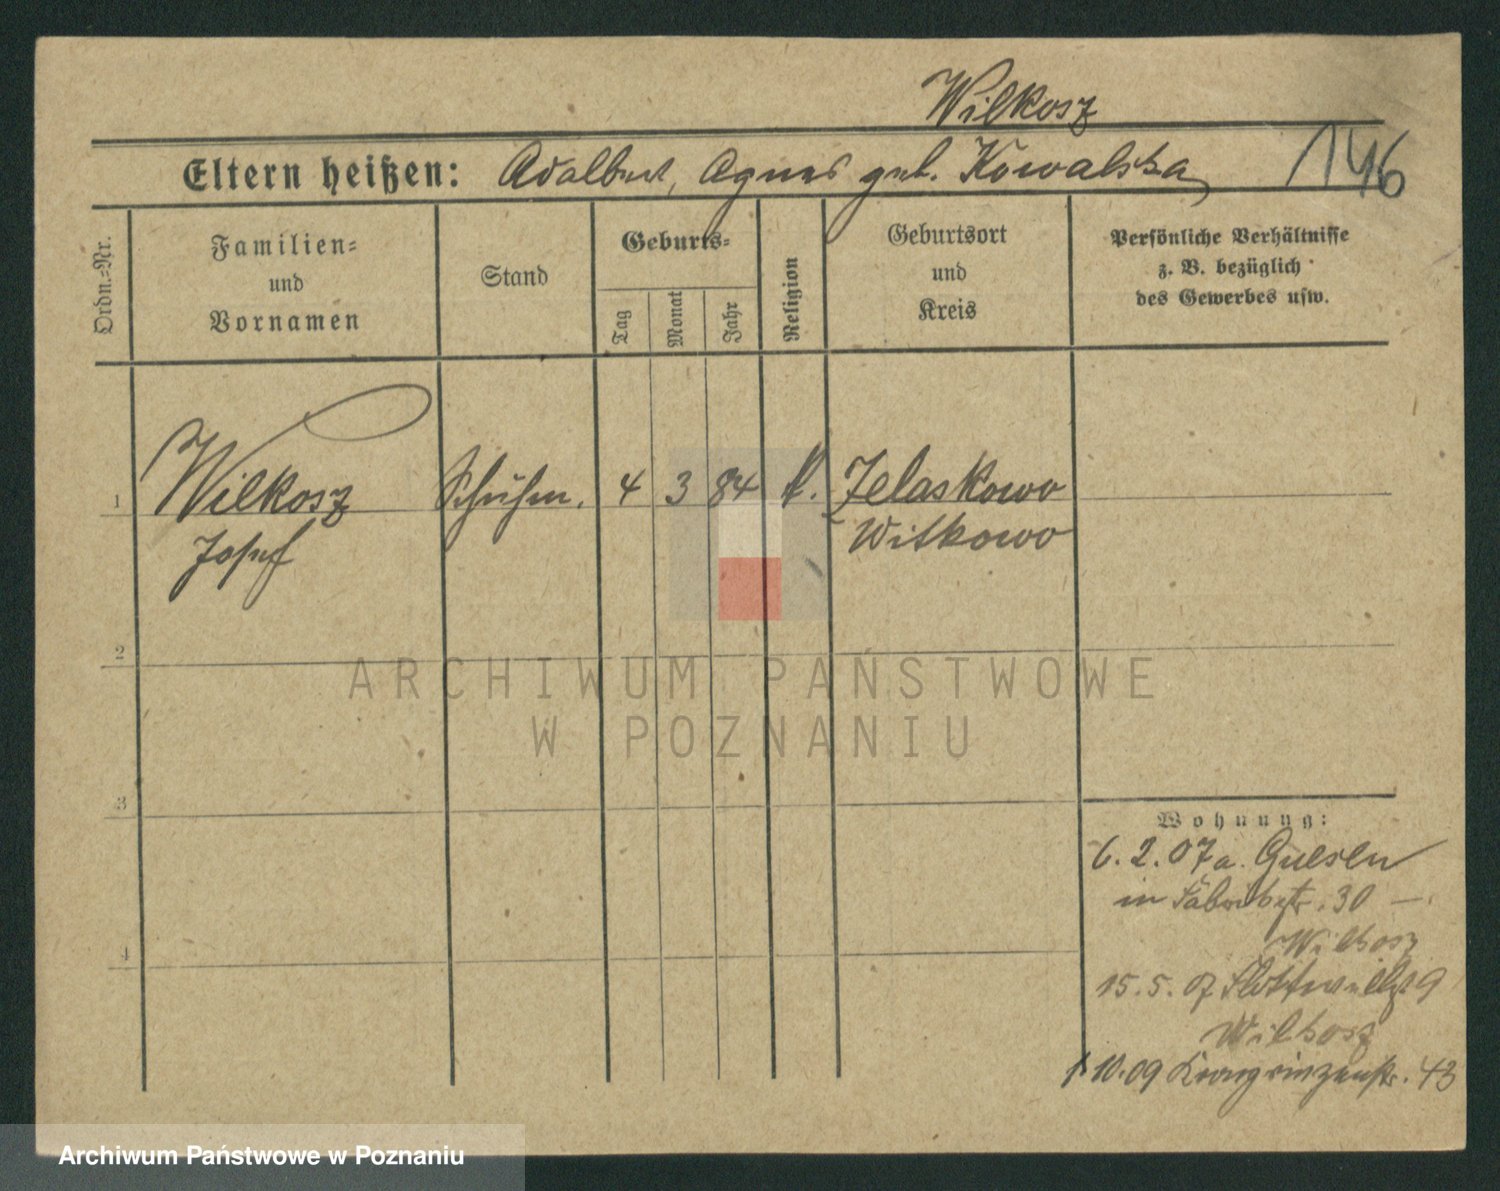 Wilkosz
Eltern heißen: Adalbert, Agnes geb. Kowalska
146
Ordn.-Nr.
Familien-
und
Vornamen
Stand
Geburts-
Tag
Monat
Jahr
Religion
Geburtsort
und
Kreis
Persönliche Verhältnisse
z. B. bezüglich
des Gewerbes usw.
1 Wilkosz Schuhm. 4 3 84 k. Zelaskowo
Josef Witkowo
2
3
4
Wohnung:
6.2.07 a. Gnesen
in Fabrikstr. 30 —.
Wilkosz
15.5.07 9
Wilkosz
1.10.09 Kronprinzenstr. 43
ARCHIWUM PAŃSTWOWE
W POZNANIU
Archiwum Państwowe w Poznaniu